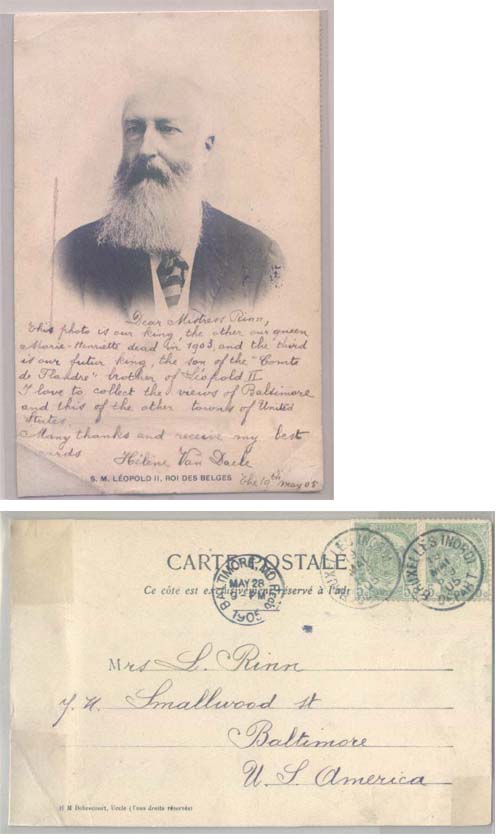 Dear Mistress Rinn,
This photo is our king, the other our queen
Marie-Henriette dead in 1903, and the third
is our futur king, the son of the "Comte
de Flandre" brother of Léopold II
I love to collect the views of Baltimore
and this of the other towns of United
States.
Many thanks and receive my best
Hélène Van Daele
S. M. LÉOPOLD II, ROI DES BELGES
the 19th may 05
CARTE POSTALE
Ce côté est exclusivement réservé à l'adr
BALTIMORE, MD
MAY 28
9-PM
1905
BRUXELLES (NORD)
BRUXELLES (NORD)
DEPART
Mrs L. Rinn
Smallwood st
Baltimore
U. S. America
Uccle (Tous droits réservés)